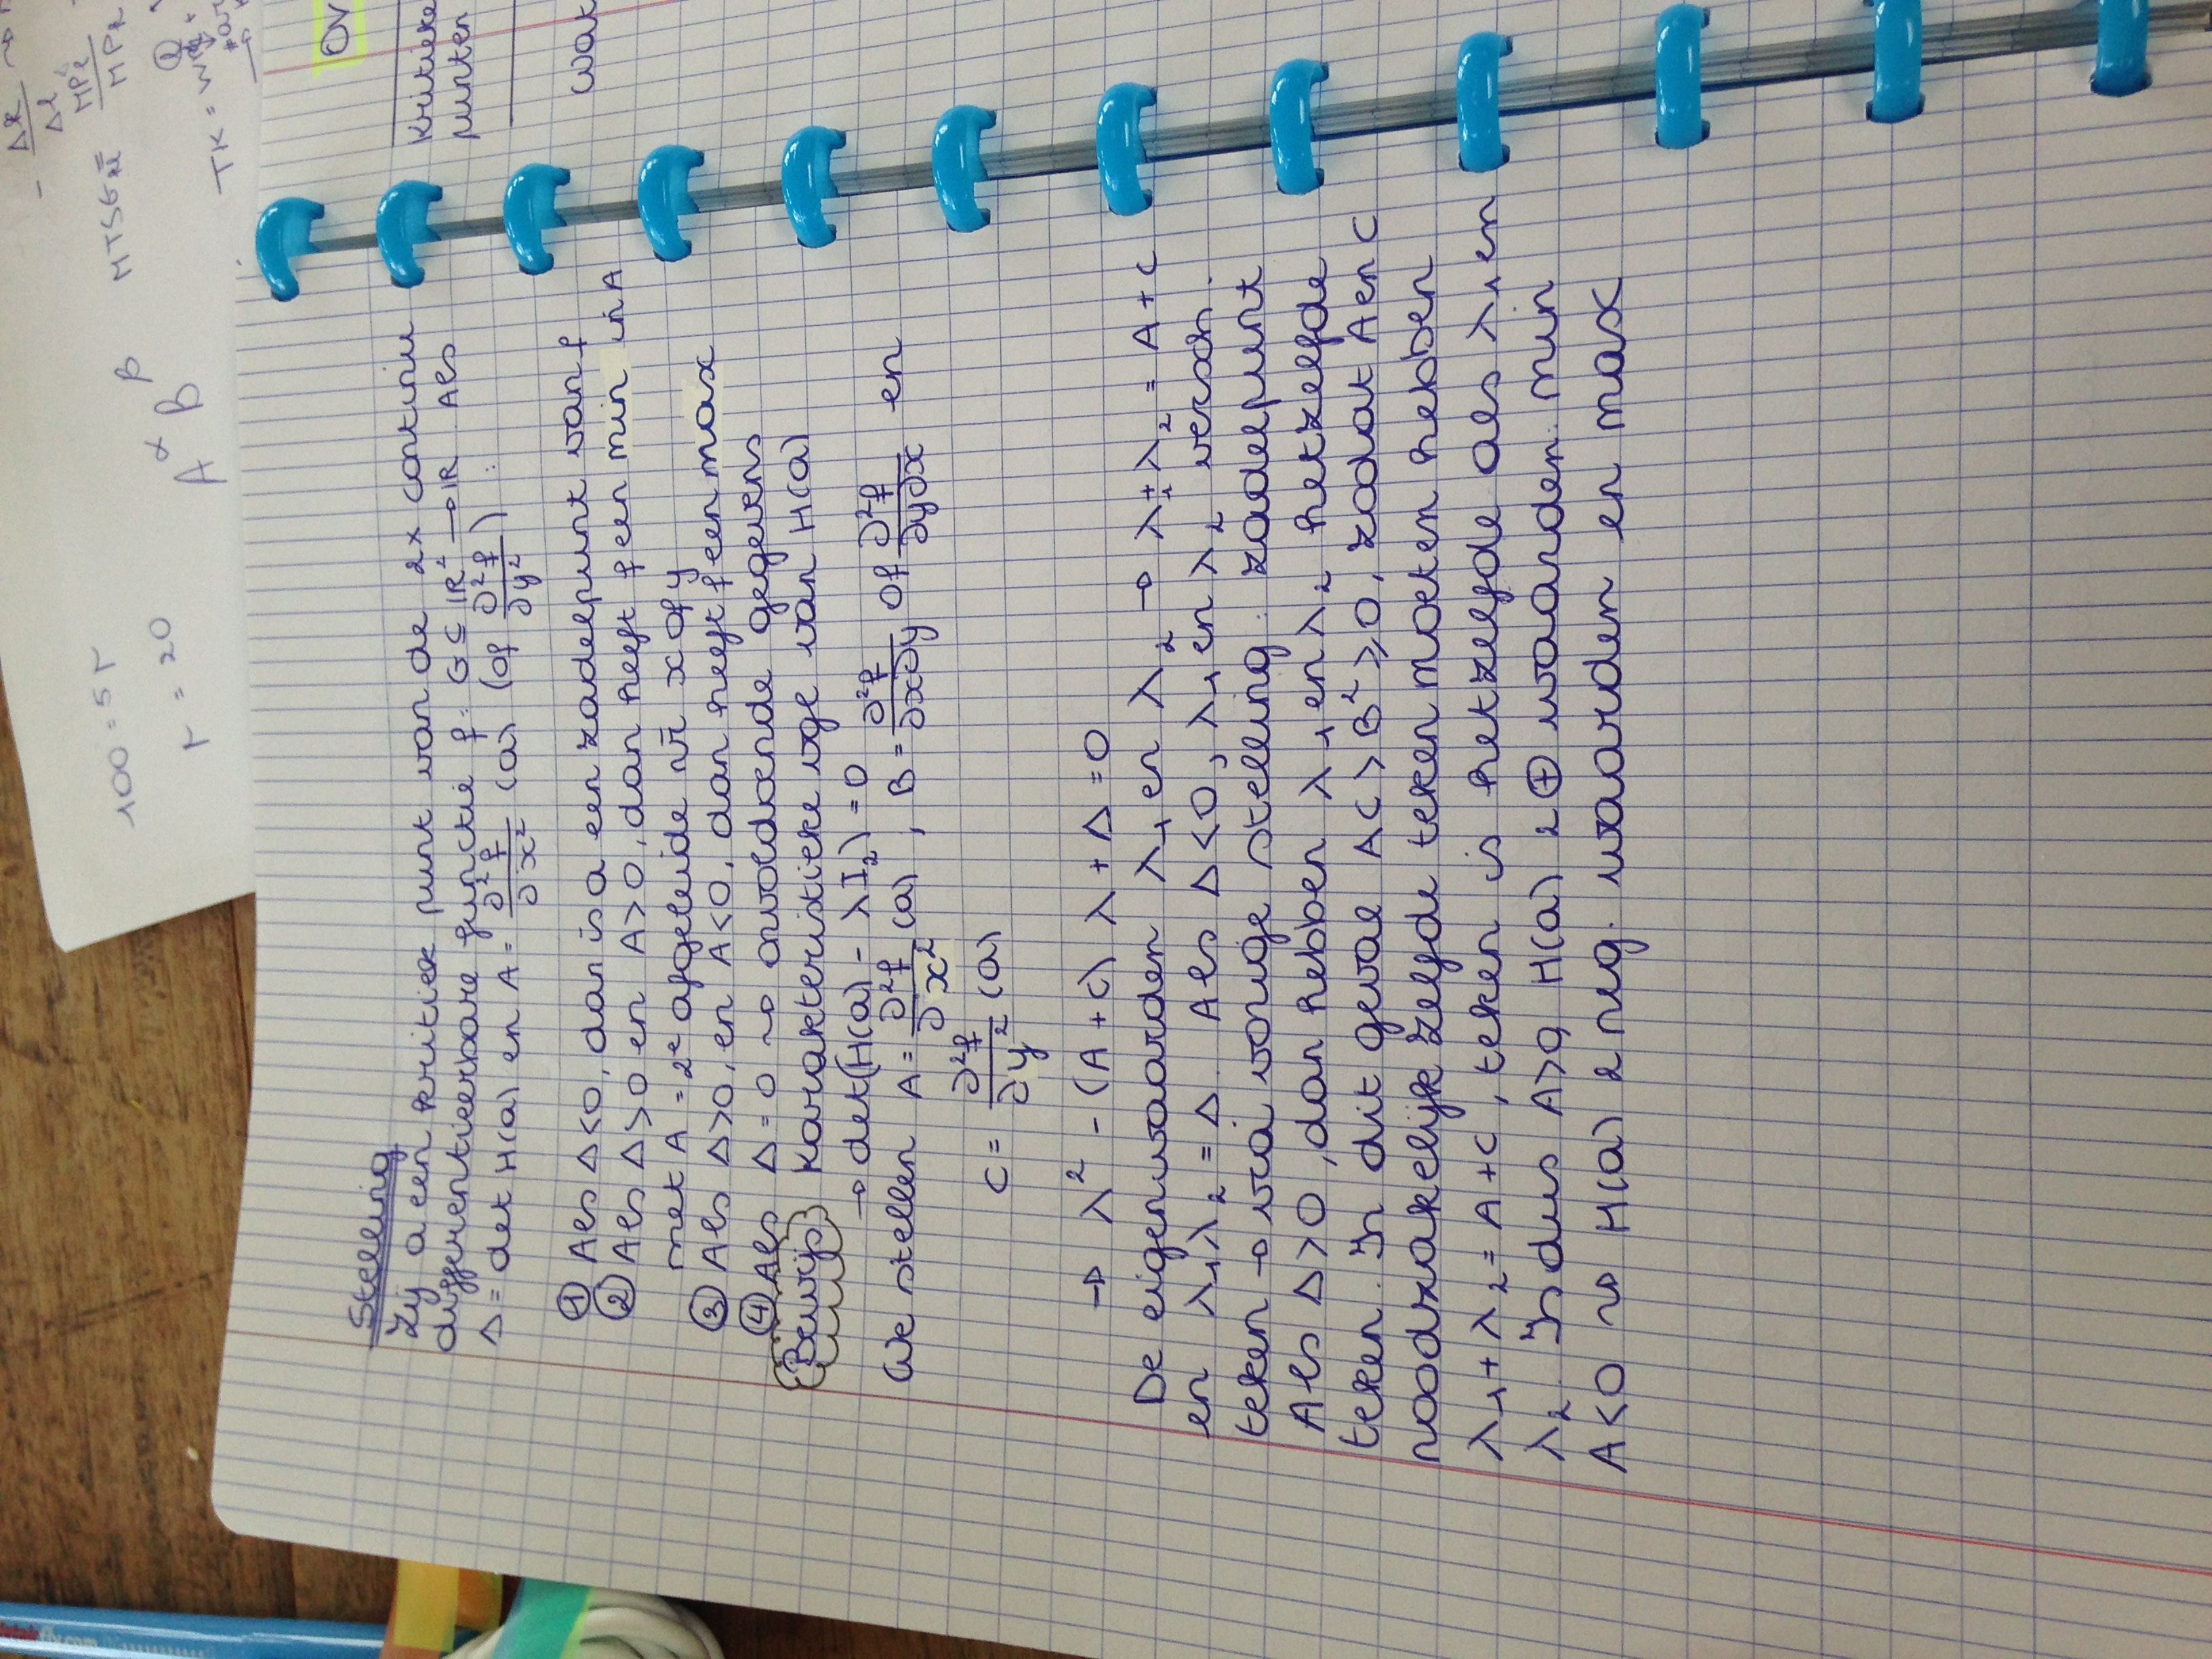 Stelling
Zij a een kritiek punt van de 2x continu
differentieerbare functie f: G ⊆ IR² → IR Als
Δ = det H(a) en A = ∂²f/∂x² (a) (of ∂²f/∂y²) :
① Als Δ<0, dan is a een zadelpunt van f
② Als Δ>0 en A>0, dan heeft f een min in A
met A = 2e afgeleide nr x of y
③ Als Δ>0, en A<0, dan heeft f een max
④ Als Δ=0 ~> onvoldoende gegevens
Bewijs Karakteristieke vgl van H(a)
→ det(H(a) - λI₂) = 0
We stellen A = ∂²f/∂x² (a) , B = ∂²f/∂x∂y of ∂²f/∂y∂x en
C = ∂²f/∂y² (a)
→ λ² - (A+C) λ + Δ = 0
De eigenwaarden λ₁ en λ₂ → λ₁+λ₂ = A+C
en λ₁λ₂ = Δ. Als Δ<0, λ₁ en λ₂ versch.
teken → via vorige stelling: zadelpunt
Als Δ>0, dan hebben λ₁ en λ₂ hetzelfde
teken. In dit geval AC > B² ≥ 0, zodat A en C
noodzakelijk zelfde teken moeten hebben
λ₁+λ₂ = A+C, teken is hetzelfde als λ₁ en
λ₂. Is dus A>0 H(a) 2 ⊕ waarden: min
A<0 ~> H(a) 2 neg. waarden en max
100 = 5r
r = 20
A^α B^β
MTSG
MPℓ
TK =
Δk
Δℓ
Ov
Kritieke
punten
Wat